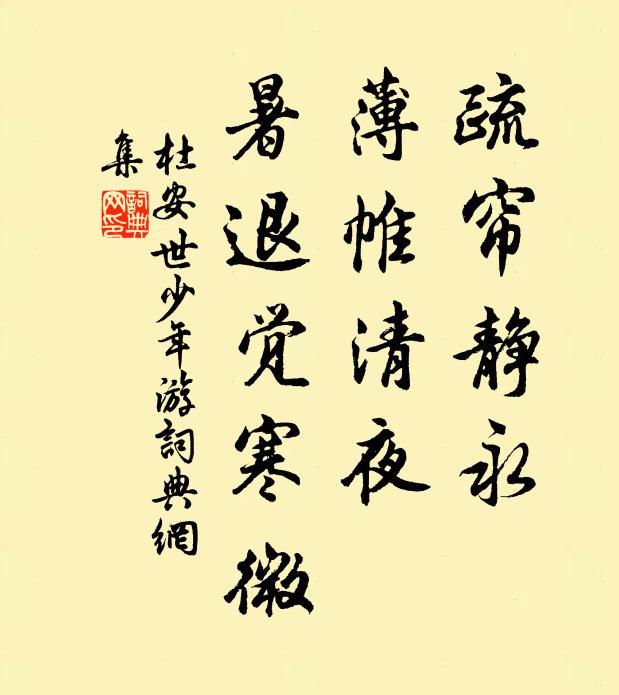 疏帘静永
薄帷清夜
暑退觉寒微
杜安世少年游詞典網
集
詞典
网印